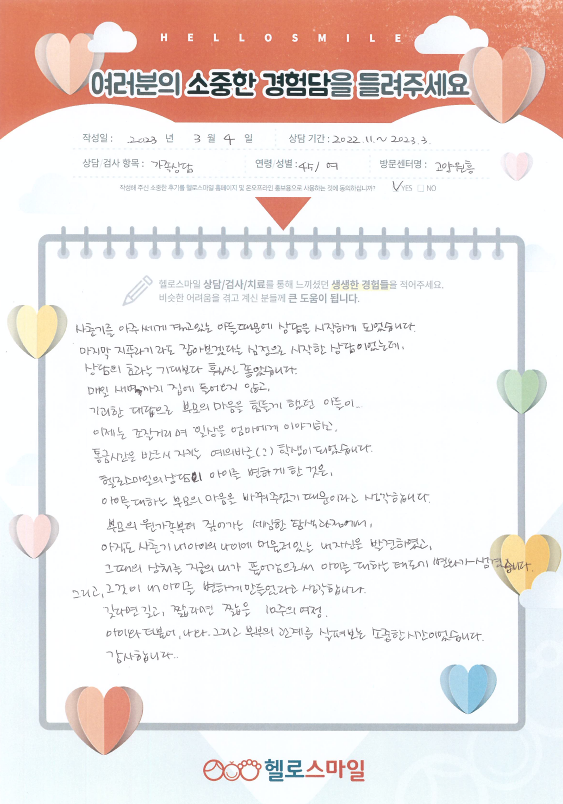 HELLOSMILE
여러분의 소중한 경험담을 들려주세요
작성일 : 2023 년 3 월 4 일 상담 기간 : 2022.11.~2023.3.
상담/검사 항목 : 가족상담 연령/성별 : 45/여 방문센터명 : 고양원흥
작성해 주신 소중한 후기를 헬로스마일 홈페이지 및 온오프라인 홍보용으로 사용하는 것에 동의하십니까? ✓YES □ NO
헬로스마일 상담/검사/치료를 통해 느끼셨던 생생한 경험들을 적어주세요.
비슷한 어려움을 겪고 계신 분들께 큰 도움이 됩니다.
사춘기를 아주 세게 겪고있는 아들때문에 상담을 시작하게 되었습니다.
마지막 지푸라기라도 잡아보겠다는 심정으로 시작한 상담이었는데,
상담의 효과는 기대보다 훨씬 좋았습니다.
매일 새벽까지 집에 들어오지 않고,
기괴한 대답으로 부모의 마음을 힘들게 했던 아들이..
이제는 조잘거리며 일상을 엄마에게 이야기하고,
통금시간을 반드시 지키는 예의바른(?) 학생이 되었습니다.
헬로스마일의 상담이 아이를 변하게 한 것은,
아이를 대하는 부모의 마음을 바꿔주었기 때문이라고 생각합니다.
부모의 원가족부터 짚어가는 세심한 탐색과정에서,
아직도 사춘기 내아이의 나이에 머물러있는 내자신을 발견하였고,
그때의 상처는 지금의 내가 품어줌으로써 아이를 대하는 태도에 변화가 생겼습니다.
그리고, 그것이 내 아이를 변하게 만들었다고 생각합니다.
길다면 길고, 짧다면 짧은 10주의 여정.
아이와 더불어, 나와. 그리고 부부의 관계를 살펴보는 소중한 시간이었습니다.
감사합니다..
헬로스마일